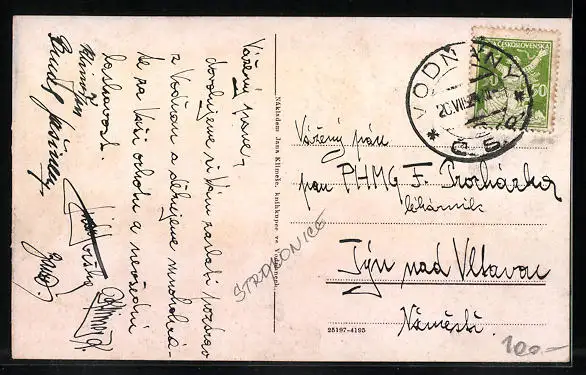 Vážený pane,
dovolujeme si Vám zaslati pozdrav
z Vodňan a děkujeme mnohokrá-
te za Vaši ochotu a nevšední
laskavost.
Nákladem Jana Klimeše, knihkupce ve Vodňanech.
VODŇANY
20.VII
ČESKOSLOVENSKÁ
50
Vážený pán
pan PHMG F. Procházka
lékárník
Týn nad Vltavou
Náměstí.
STRAKONICE
25197-4195
100-